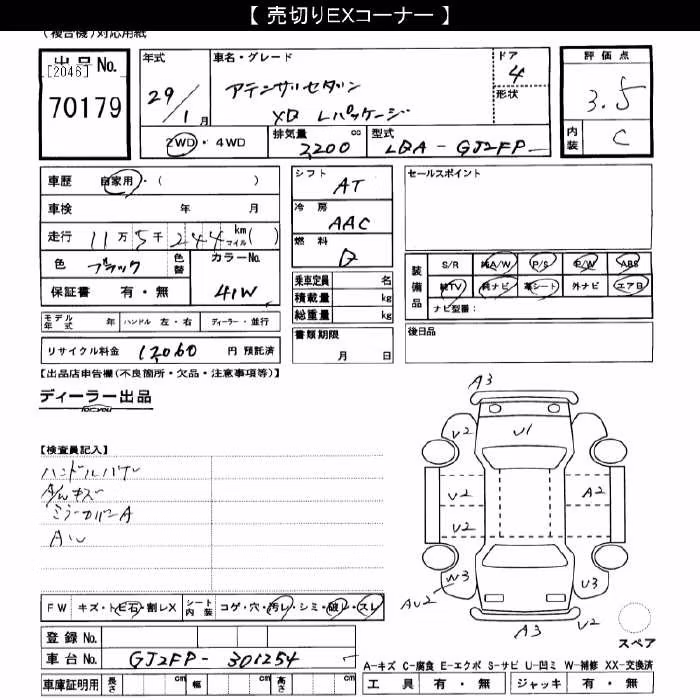 【 売切りEXコーナー 】
(複合機)対応用紙
出品No.
[2046]
70179
年式
29/1月
車名・グレード
アテンザセダン
XD Lパッケージ
ドア
4
形状
2WD・4WD
排気量 2,200 cc
型式 LDA - GJ2FP
評価点
3.5
内装 C
車歴 自家用・( )
車検 年 月
走行 11万5千244 km マイル( )
色 ブラック 色替
カラーNo.
41W
保証書 有・無
シフト
AT
冷房
AAC
燃料
D
セールスポイント
乗車定員 名
積載量 kg
総重量 kg
装備品
S/R 純A/W P/S P/W ABS
純TV 純ナビ 革シート 外ナビ エアB
ナビ型番:
モデル年式 年 ハンドル 左・右 ディーラー・並行
書類期限
月 日
後日品
リサイクル料金 12,060 円 預託済
【出品店申告欄(不良箇所・欠品・注意事項等)】
ディーラー出品
【検査員記入】
A/Wキズ
ミラーカバーA
A3
V2
U1
V2
V2
A2
W3
AU2
U3
A3
V2
スペア
FW キズ・トビ石・割レX
シート内装 コゲ・穴・汚レ・シミ・破レ・スレ
登録No.
車台No. GJ2FP - 301254
車庫証明用 長さ cm 幅 cm 高さ cm
A-キズ C-腐食 E-エクボ S-サビ U-凹ミ W-補修 XX-交換済
工具 有・無 ジャッキ 有・無